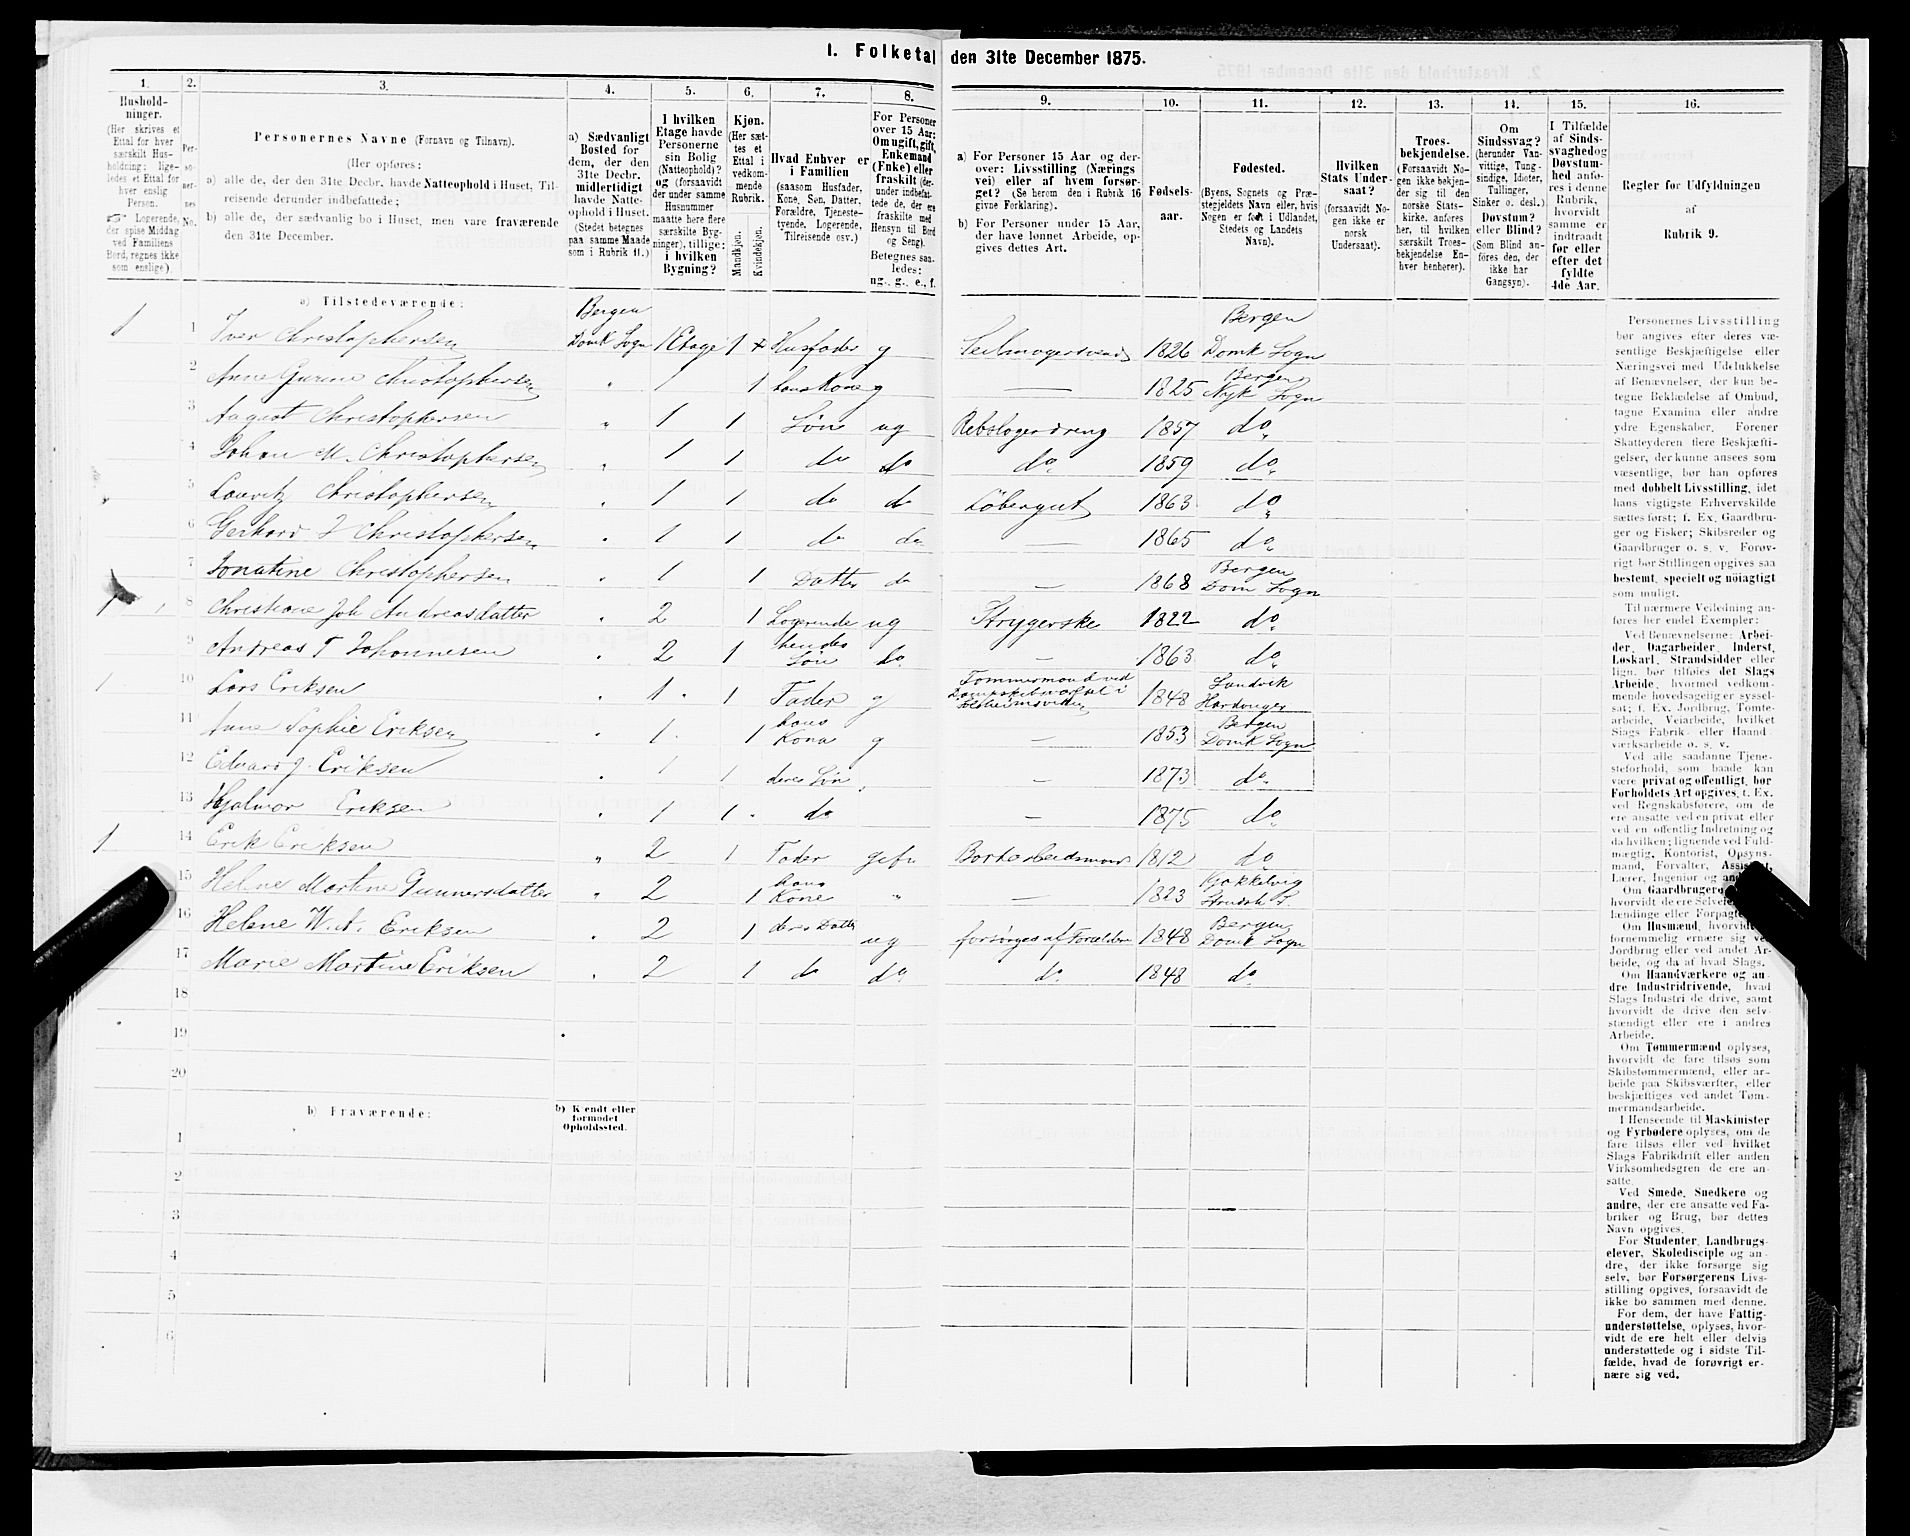 1. Folketal den 31te December 1875.
1.
Hushold-
ninger.
(Her skrives et
Ettal for hver
særskilt Hus-
holdning; lige-
ledes et Ettal for
hver enslig
Person.
Logerende,
der spise Middag
ved Familiens
Bord, regnes ikke
som enslige)
2.
Per-
so-
ner-
nes
No.
3.
Personernes Navne (Fornavn og Tilnavn).
(Her opføres:
a) alle de, der den 31te Decbr. havde Natteophold i Huset, Til-
reisende derunder indbefattede;
b) alle de, der sædvanlig bo i Huset, men vare fraværende
den 31te December.
4.
a) Sædvanligt
Bosted for
dem, der den
31te Decbr.
midlertidigt
havde Natte-
ophold i Huset.
(Stedet betegnes
paa samme Maade
som i Rubrik 11.)
5.
I hvilken
Etage havde
Personerne
sin Bolig
(Natteophold)?
og (forsaavidt
der under samme
Husnummer
maatte høre flere
særskilte Byg-
ninger), tillige:
i hvilken
Bygning?
6.
Kjøn.
(Her sæt-
tes et
Ettal i
vedkom-
mende
Rubrik.
Mandkjøn.
Kvindekjøn.
7.
Hvad Enhver er
i Familien
(saasom Husfader,
Kone, Søn, Datter,
Forældre, Tjeneste-
tyende, Logerende,
Tilreisende osv.)
8.
For Personer
over 15 Aar:
Om ugift, gift,
Enkemand
(Enke) eller
fraskilt (der-
under indbefat-
tede de, der ere
fraskilte med
Hensyn til Bord
og Seng).
Betegnes saa-
ledes:
ug., g., e., f.
9.
a) For Personer 15 Aar og der-
over: Livsstilling (Nærings
vei) eller af hvem forsør-
get? (Se herom den i Rubrik 16
givne Forklaring).
b) For Personer under 15 Aar,
der have lønnet Arbeide, op-
gives dettes Art.
10.
Fødsels-
aar.
11.
Fødested.
(Byens, Sognets og Præ-
stegjeldets Navn eller, hvis
Nogen er født i Udlandet,
Stedets og Landets
Navn).
12.
Hvilken
Stats Under-
saat?
(forsaavidt No-
gen ikke er
norsk
Undersaat).
13.
Troes-
bekjendelse.
(Forsaavidt No-
gen ikke bekjen-
der sig til den
norske Stats-
kirke, anføres
her, til hvilken
særskilt Troes-
bekjendelse En-
hver henhører).
14.
Om
Sindssvag?
(herunder Van-
vittige, Tung-
sindige, Idioter,
Tullinger,
Sinker o. desl.)
Døvstum?
eller Blind?
(Som Blind an-
føres den, der
ikke har
Gangsyn).
15.
I Tilfælde
af Sinds-
svaghed og
Døvstum-
hed anfø-
res i denne
Rubrik,
hvorvidt
samme er
indtraadt
før eller
efter det
fyldte
4de Aar.
16.
Regler for Udfyldningen
af
Rubrik 9.
a) Tilstedeværende:
1 1 Iver Christophersen Bergen Domk Sogn 1 Etage 1 Husfader g Seilmagersvend 1826 Bergen Domk Sogn
2 Anne Gurine Christophersen " 1 1 hans Kone g — 1825 Bergen Nyk Sogn
3 August Christophersen " 1 1 Søn ug Rebslagerdreng 1857 do
4 Johan M. Christophersen " 1 1 do do do 1859 do
5 Lauritz Christophersen " 1 1 do do Løbergut 1863 do
6 Gerhard J Christophersen " 1 1 do do — 1865 do
7 Jonatine Christophersen " 1 1 Datter do — 1868 Bergen Dom Sogn
1 8 Christiane Joh Andreasdatter " 2 1 Logerende ug Strygerske 1822 do
9 Andreas T Johannesen " 2 1 hendes Søn do — 1863 do
1 10 Lars Eriksen " 1 1 Fader g Tømmermand ved 1848 Sandvik Hardanger
11 Anne Sophie Eriksen " 1 1 hans Kona g — 1853 Bergen Domk Sogn
12 Edvard J. Eriksen " 1 1 deres Søn — 1873 do
13 Hjalmar Eriksen " 1 1 do — 1875 do
1 14 Erik Eriksen " 2 1 Fader gift Bortarbeidsmand 1812 do
15 Helene Martine Gunnersdatter " 2 1 hans Kone " — 1823
16 Helene W. A. Eriksen " 2 1 deres Datter ug forsørges af Forældre 1848 Bergen Domk Sogn
17 Marie Martine Eriksen " 2 1 do do do 1848 do
18
19
20
b) Fraværende:
b) Kjendt eller
formodet
Opholdssted.
1
2
3
4
5
6
Personernes Livsstilling
bør angives efter deres væ-
sentlige Beskjæftigelse eller
Næringsvei med Udelukkelse
af Benævnelser, der kun be-
tegne Beklædelse af Ombud,
tagne Examina eller andre
ydre Egenskaber. Forener
Skatteyderen flere Beskjæfti-
gelser, der kunne ansees som
væsentlige, bør han opføres
med dobbelt Livsstilling, idet
hans vigtigste Erhvervskilde
sættes først; f. Ex. Gaardbru-
ger og Fisker; Skibsreder og
Gaardbruger o. s. v. Forøv-
rigt bør Stillingen opgives saa
bestemt, specielt og nøiagtigt
som muligt.
Til nærmere Veiledning an-
føres her endel Exempler:
Ved Benævnelserne: Arbei-
der, Dagarbeider, Inderst,
Løskarl, Strandsidder eller
lign. bør tilføies det Slags
Arbeide, hvormed vedkom-
mende hovedsagelig er syssel-
sat; f. Ex. Jordbrug, Tomte-
arbeide, Veiarbeide, hvilket
Slags Fabrik- eller Haand-
værksarbeide o. s. v.
Ved alle saadanne Tjene-
steforhold, som baade kan
være privat og offentligt, bør
Forholdets Art opgives, f. Ex.
ved Regnskabsførere, om de
ere ansatte ved en privat eller
ved en offentlig Indretning og
da hvilken; lignende ved Fuld-
mægtig, Kontorist, Opsyns-
mand, Forvalter, Assistent,
Lærer, Ingeniør og andre.
Om Gaardbrugere
hvorvidt de ere Selveiere,
Lændinge eller Forpagtere.
Om Husmænd, hvorvidt
fornemmelig ernære sig ved
Jordbrug eller ved andet Ar-
beide, og da af hvad Slags.
Om Haandværkere og an-
dre Industridrivende, hvad
Slags Industri de drive, samt
hvorvidt de drive den selv-
stændigt eller ere i andres
Arbeide.
Om Tømmermænd oplyses,
hvorvidt de fare tilsøs som
Skibstømmermænd, eller ar-
beide paa Skibsværfter, eller
beskjæftiges ved andet Tøm-
mermandsarbeide.
I Henseende til Maskinister
og Fyrbødere oplyses, om de
fare tilsøs eller ved hvilket
Slags Fabrikdrift eller anden
Virksomhedsgren de ere an-
satte.
Ved Smede, Snedkere og
andre, der ere ansatte ved Fa-
briker og Brug, bør dettes
Navn opgives.
For Studenter, Landbrugs-
elever, Skoledisciple og an-
dre, der ikke forsørge sig
selv, bør Forsørgerens Livs-
stilling opgives, forsaavidt de
ikke bo sammen med denne.
For dem, der have Fattig-
understøttelse, oplyses, hvor-
vidt de ere helt eller delvis
understøttede og i sidste Til-
fælde, hvad de forøvrigt er-
nære sig ved.